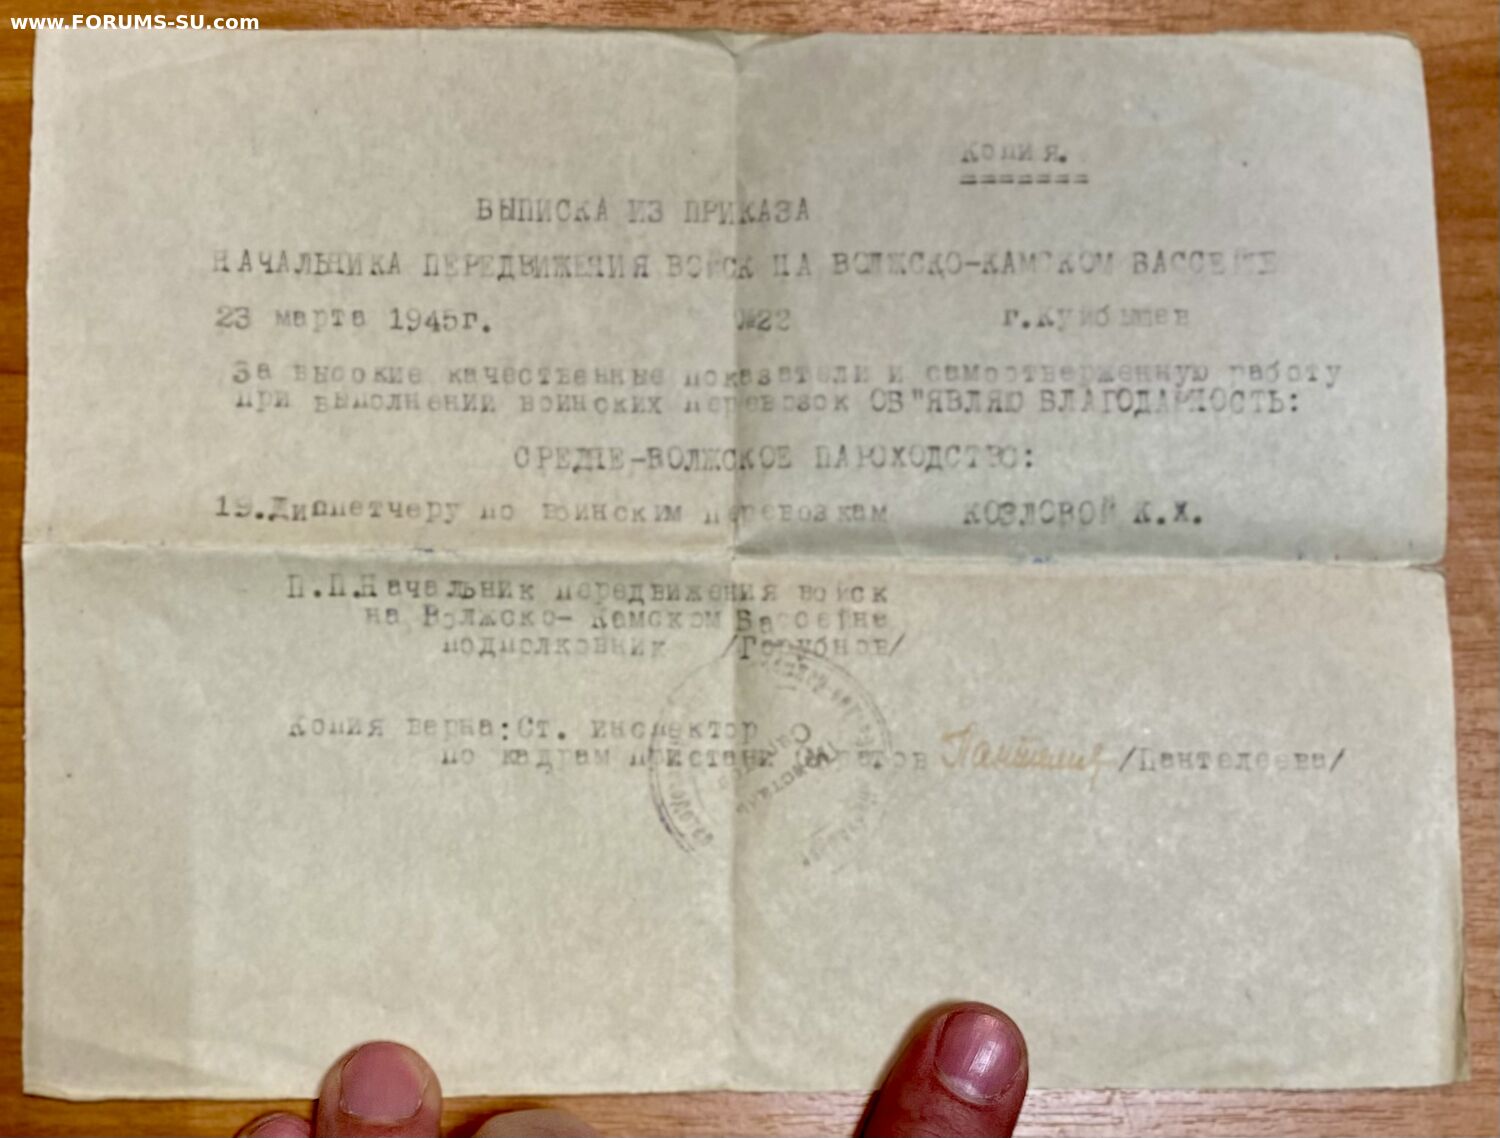 www.FORUMS-SU.com
Копия.
=======
ВЫПИСКА ИЗ ПРИКАЗА
НАЧАЛЬНИКА ПЕРЕДВИЖЕНИЯ ВОЙСК НА ВОЛЖСКО-КАМСКОМ БАССЕЙНЕ
23 марта 1945г. №22 г.Куйбышев
За высокие качественные показатели и самоотверженную работу
при выполнении воинских перевозок ОБ"ЯВЛЯЮ БЛАГОДАРНОСТЬ:
СРЕДНЕ-ВОЛЖСКОЕ ПАРОХОДСТВО:
19.Диспетчеру по воинским перевозкам КОЗЛОВОЙ К.Х.
П.П.Начальник передвижения войск
на Волжско-Камском Бассейне
подполковник /Горубнов/
Копия верна:Ст. инспектор
по кадрам пристани Саратов /Пантелеева/
Пристань